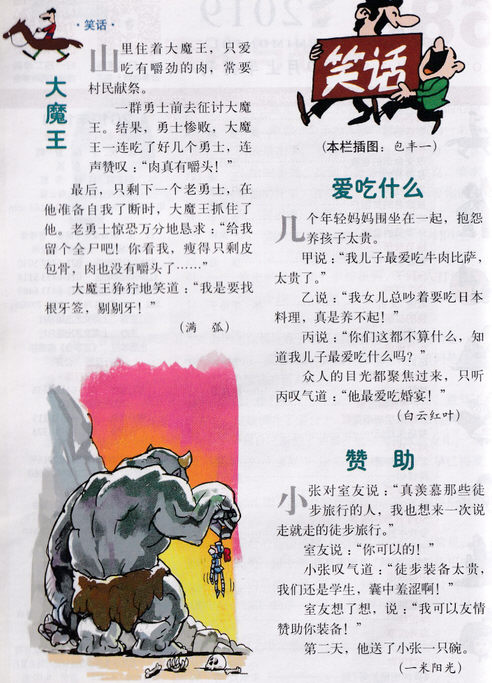 ·笑话·
大魔王
山里住着大魔王，只爱
吃有嚼劲的肉，常要
村民献祭。
一群勇士前去征讨大魔
王。结果，勇士惨败，大魔
王一连吃了好几个勇士，连
声赞叹：“肉真有嚼头！”
最后，只剩下一个老勇士，在
他准备自我了断时，大魔王抓住了
他。老勇士惊恐万分地恳求：“给我
留个全尸吧！你看我，瘦得只剩皮
包骨，肉也没有嚼头了……”
大魔王狰狞地笑道：“我是要找
根牙签，剔剔牙！”
（满 弧）
笑话
（本栏插图：包丰一）
爱吃什么
几个年轻妈妈围坐在一起，抱怨
养孩子太贵。
甲说：“我儿子最爱吃牛肉比萨，
太贵了。”
乙说：“我女儿总吵着要吃日本
料理，真是养不起！”
丙说：“你们这都不算什么，知
道我儿子最爱吃什么吗？”
众人的目光都聚焦过来，只听
丙叹气道：“他最爱吃婚宴！”
（白云红叶）
赞助
小张对室友说：“真羡慕那些徒
步旅行的人，我也想来一次说
走就走的徒步旅行。”
室友说：“你可以的！”
小张叹气道：“徒步装备太贵，
我们还是学生，囊中羞涩啊！”
室友想了想，说：“我可以友情
赞助你装备！”
第二天，他送了小张一只碗。
（一米阳光）